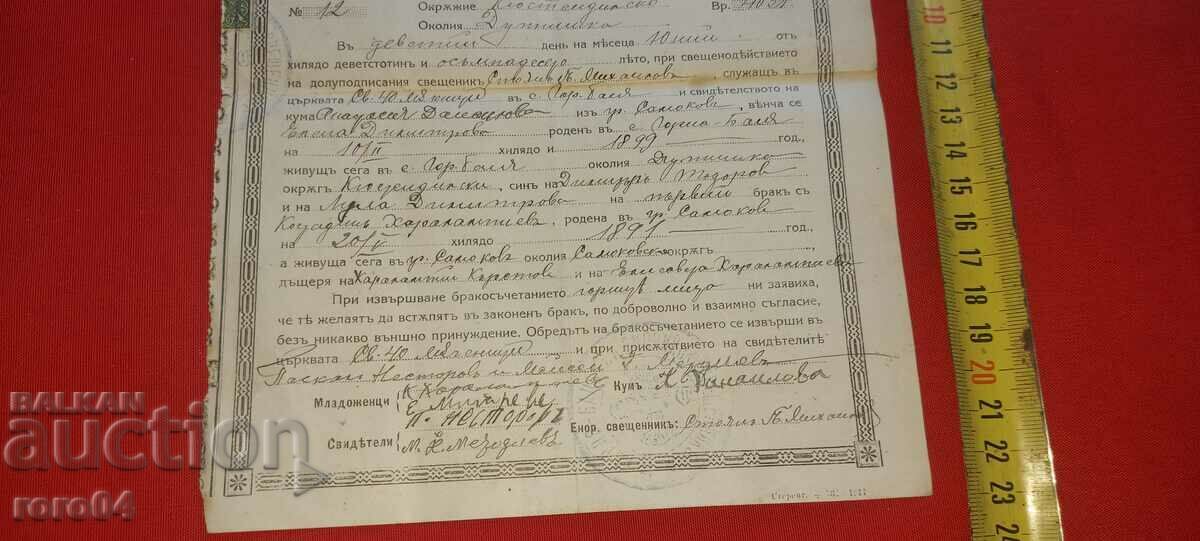 № 12 Окржжие Кюстендилско Вр.
Околия Дупнишка
Въ деветий день на мѣсеца Юний отъ
хилядо деветстотинъ и осъмнадесето лѣто, при свещенодѣйството
на долуподписания свещеникъ Стоилъ П. Михаиловъ, служащъ въ
църквата Св. 40 Мѫченици въ с. Гор. Баня и свидетелството на
кума изъ гр. Самоковъ, вѣнча се
Димитровъ роденъ въ с. Горна-Баня
на 10/II хилядо и 1899 год.,
живущъ сега въ с. Гор. Баня околия Дупнишка
окржгъ Кюстендилски, синъ на Димитъръ Тодоровъ
и на Димитрова на първий бракъ съ
Харалампиева, родена въ гр. Самоковъ
на 20/V хилядо 1891 год.,
а живуща сега въ гр. Самоковъ околия Самоковска окржгъ ,
дъщеря на Харалампи Христовъ и на Елисавета Харалампиева
При извършване бракосъчетанието горнитѣ лица ни заявиха,
че тѣ желаятъ да встѫпятъ въ законенъ бракъ, по доброволно и взаимно съгласие,
безъ никакво външно принуждение. Обредътъ на бракосъчетанието се извърши въ
църквата Св. 40 Мѫченици и при присѫтствието на свидетелитѣ
Паскалъ Несторовъ и
Младоженци К. Харалампиева Кумъ
Е.
П. Несторовъ
Свидѣтели М. Енор. свещеникъ: Стоилъ П. Михаиловъ
BALKAN
auction
roro04
10
11
12
13
14
15
16
17
18
19
20
21
22
23
24